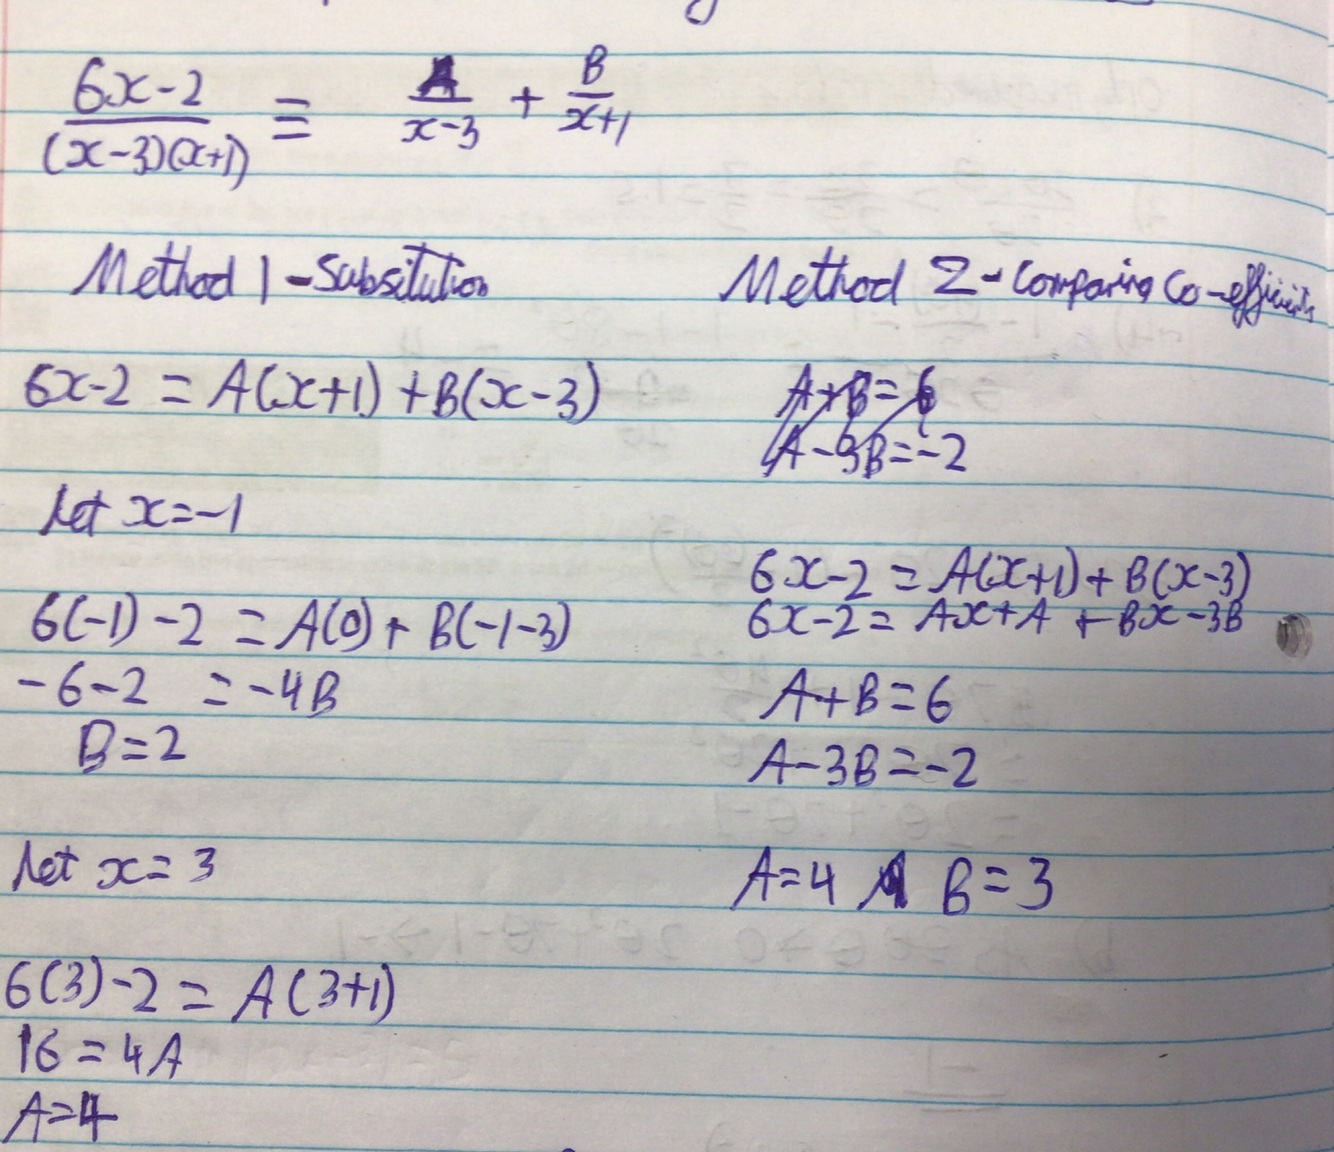 6x-2 / (x-3)(x+1) ≡ A / x-3 + B / x+1
Method 1 - Subsitution
6x-2 = A(x+1) + B(x-3)
let x=-1
6(-1) -2 = A(0) + B(-1-3)
-6-2 = -4B
B=2
let x=3
6(3)-2 = A(3+1)
16 = 4A
A=4
Method 2 - Comparing Co-efficients
A+B=6
A-3B=-2
6x-2 = A(x+1) + B(x-3)
6x-2 = Ax+A + Bx-3B
A+B=6
A-3B=-2
A=4 B=3